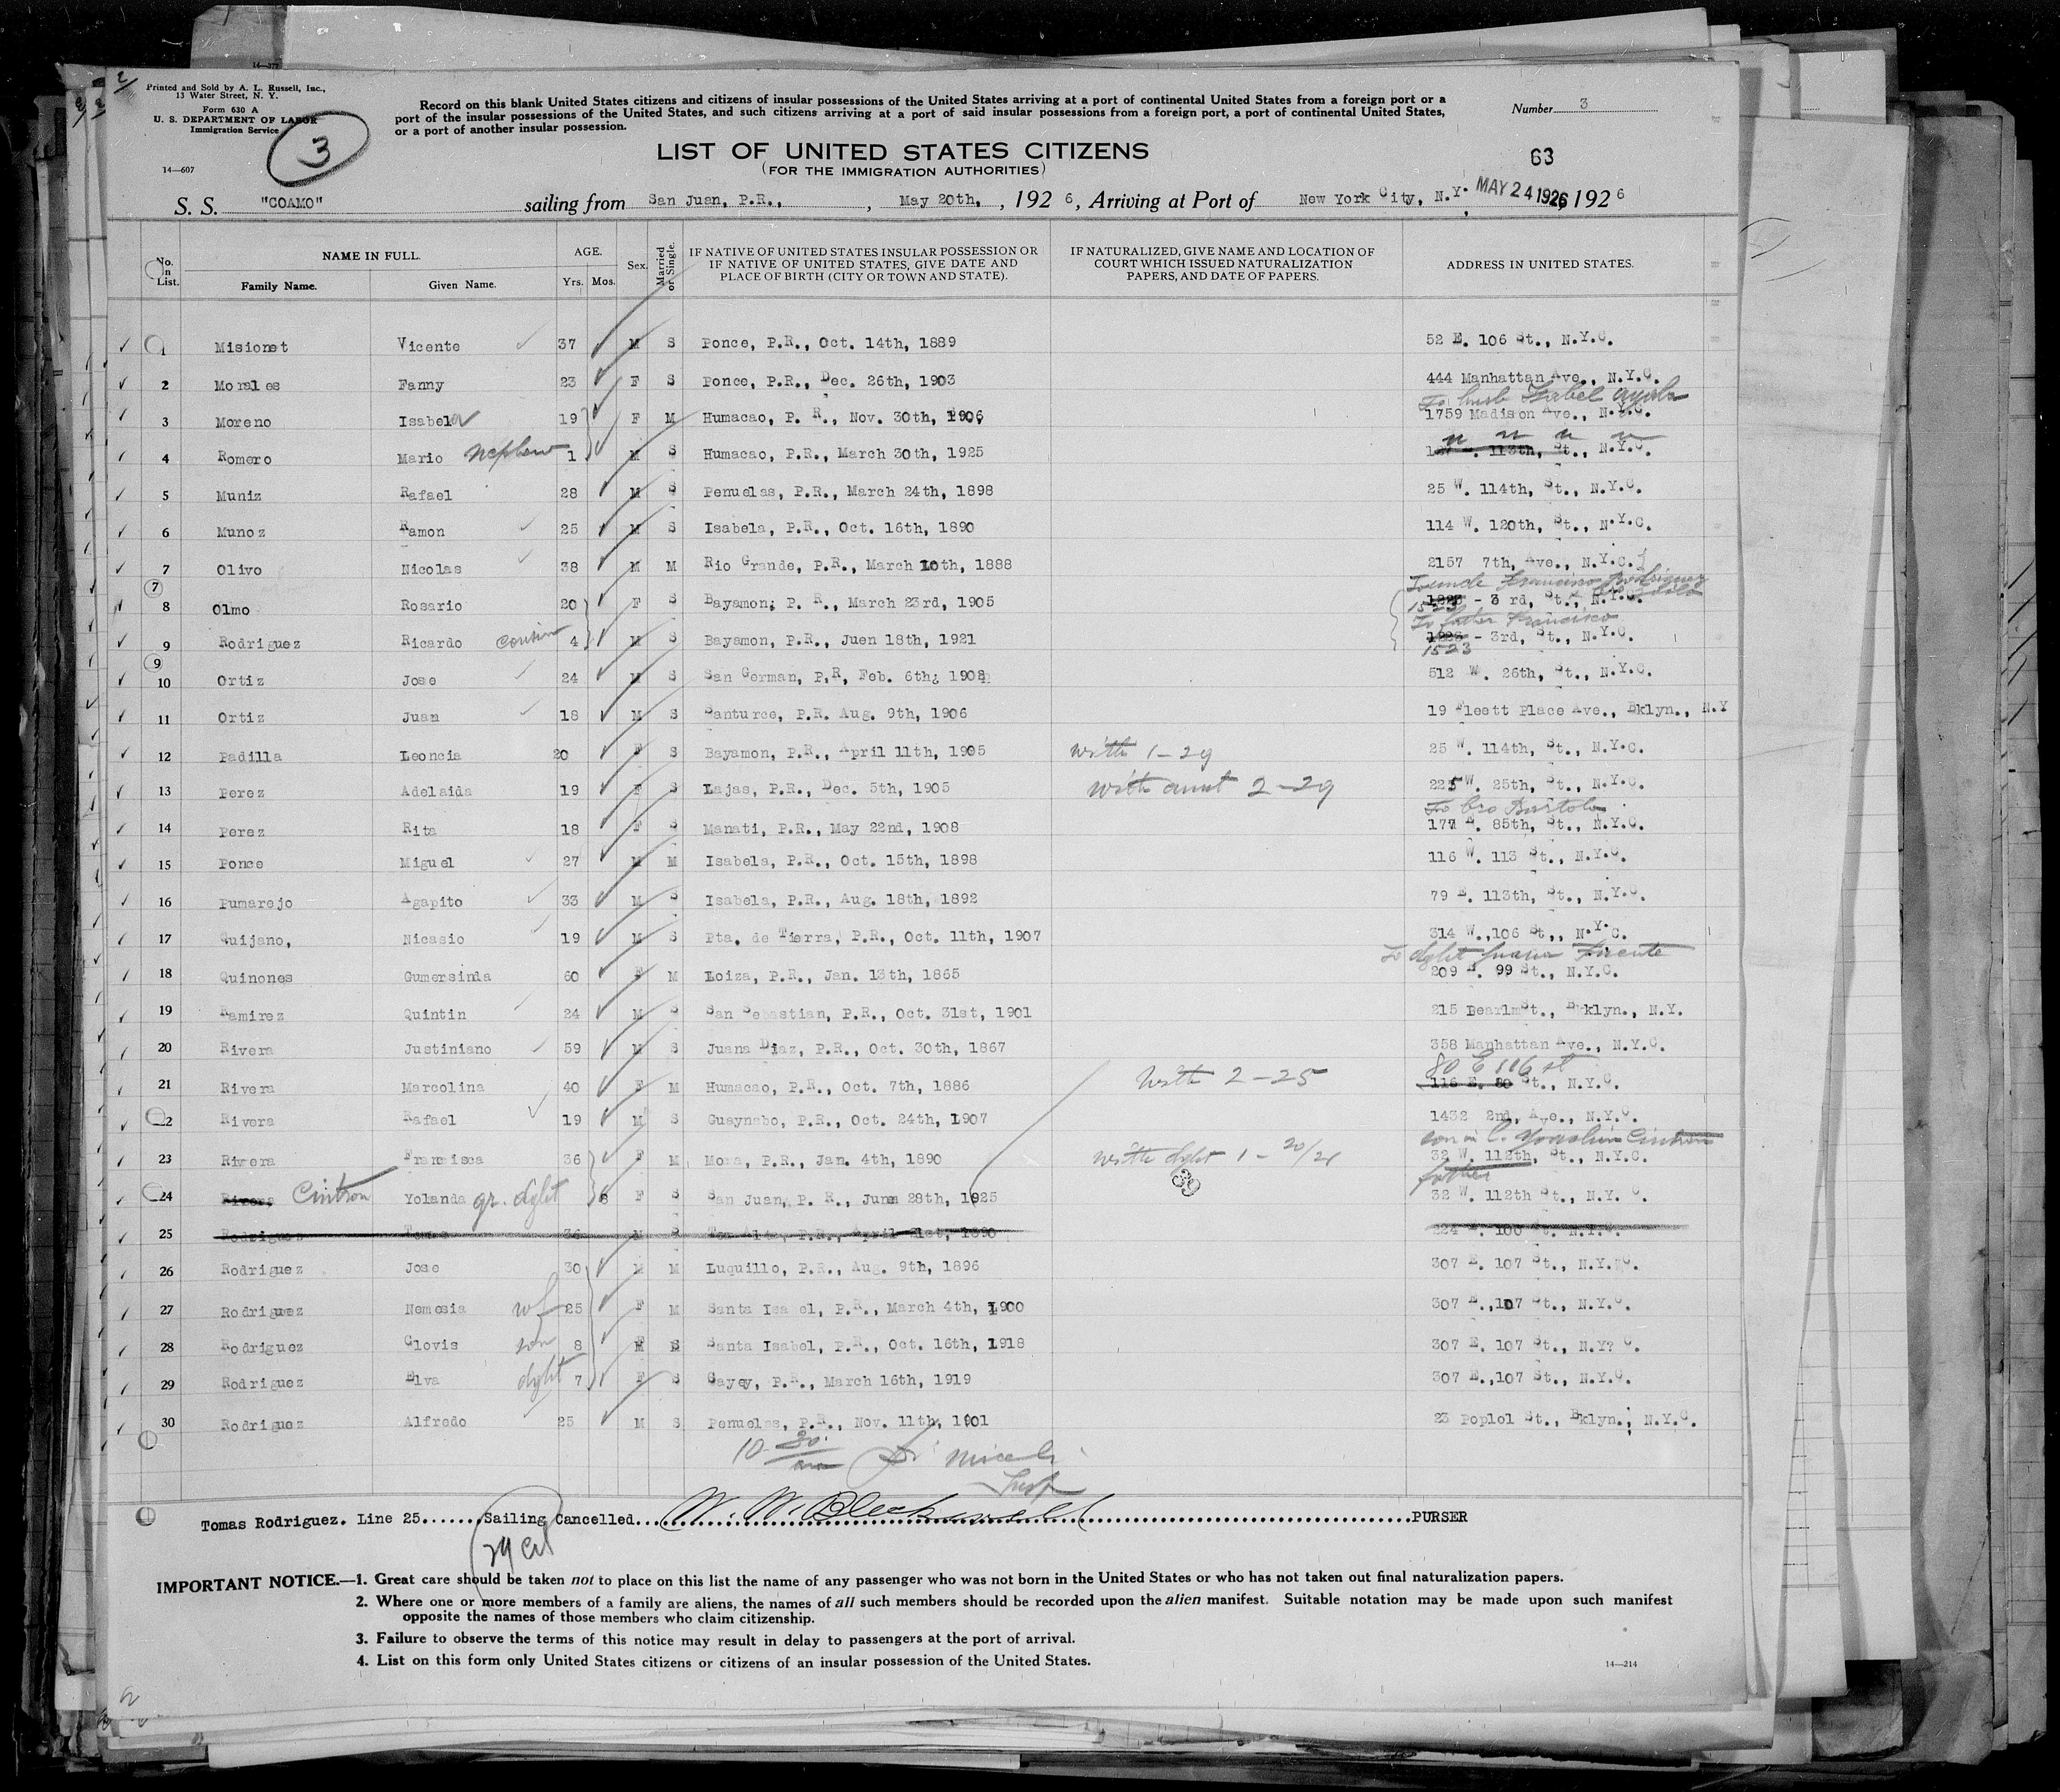 Printed and Sold by A. L. Russell, Inc.,
13 Water Street, N. Y.
Form 630 A
U. S. DEPARTMENT OF LABOR
Immigration Service
3
14—607
Record on this blank United States citizens and citizens of insular possessions of the United States arriving at a port of continental United States from a foreign port or a
port of the insular possessions of the United States, and such citizens arriving at a port of said insular possessions from a foreign port, a port of continental United States,
or a port of another insular possession.
Number 3
LIST OF UNITED STATES CITIZENS
(FOR THE IMMIGRATION AUTHORITIES)
63
S. S. "COAMO" sailing from San Juan, P.R., , May 20th, , 192 6, Arriving at Port of New York City, N.Y. MAY 24 1926, 192 6
No. in List. NAME IN FULL. Family Name. Given Name. AGE. Yrs. Mos. Sex. Married or Single. IF NATIVE OF UNITED STATES INSULAR POSSESSION OR IF NATIVE OF UNITED STATES, GIVE DATE AND PLACE OF BIRTH (CITY OR TOWN AND STATE). IF NATURALIZED, GIVE NAME AND LOCATION OF COURT WHICH ISSUED NATURALIZATION PAPERS, AND DATE OF PAPERS. ADDRESS IN UNITED STATES.
1 Misionet Vicente 37 M S Ponce, P.R., Oct. 14th, 1889 52 E. 106 St., N.Y.C.
2 Morales Fanny 23 F S Ponce, P.R., Dec. 26th, 1903 444 Manhattan Ave., N.Y.C.
To husb Isabel Ayala
3 Moreno Isabela 19 F M Humacao, P. R., Nov. 30th, 1906 1759 Madison Ave., N.Y.C.
" " " "
4 Romero Mario Nephew 1 M S Humacao, P.R., March 30th, 1925 113th, St., N.Y.C.
5 Muniz Rafael 28 M S Penuelas, P.R., March 24th, 1898 25 W. 114th, St., N.Y.C.
6 Munoz Ramon 25 M S Isabela, P.R., Oct. 16th, 1890 114 W. 120th, St., N.Y.C.
7 Olivo Nicolas 38 M M Rio Grande, P.R., March 10th, 1888 2157 7th, Ave., N.Y.C.
7
To uncle Francisco Rodriguez
8 Olmo Rosario 20 F S Bayamon; P. R., March 23rd, 1905 1523 - 3 rd, St., N.Y.C.
To father Francisco
9 Rodriguez Ricardo cousin 4 M S Bayamon, P.R., Juen 18th, 1921 - 3rd, St., N.Y.C.
1523
9
10 Ortiz Jose 24 M S San German, P.R, Feb. 6th, 190 512 W. 26th, St., N.Y.C.
11 Ortiz Juan 18 M S Santurce, P.R. Aug. 9th, 1906 19 Fleett Place Ave., Bklyn., N.Y
12 Padilla Leoncia 20 F S Bayamon, P.R., April 11th, 1905 with 1-29 25 W. 114th, St., N.Y.C.
13 Perez Adelaida 19 F S Lajas, P.R., Dec. 5th, 1905 with aunt 2-29 225 W. 25th, St., N.Y.C.
To bro Bartolo
14 Perez Rita 18 F S Manati, P.R., May 22nd, 1908 177 E. 85th, St., N.Y.C.
15 Ponce Miguel 27 M M Isabela, P.R., Oct. 15th, 1898 116 W. 113 St., N.Y.C.
16 Pumarejo Agapito 33 M S Isabela, P.R., Aug. 18th, 1892 79 E. 113th, St., N.Y.C.
17 Quijano, Nicasio 19 M S Pta. de Tierra, P.R., Oct. 11th, 1907 314 W.,106 St,, N.Y.C.
To dght Juana
18 Quinones Gumersinda 60 F M Loiza, P.R., Jan. 13th, 1865 209 E. 99 St., N.Y.C.
19 Ramirez Quintin 24 M S San Sebastian, P.R., Oct. 31st, 1901 215 Dearlm St., Bklyn., N.Y.
20 Rivera Justiniano 59 M S Juana Diaz, P.R., Oct. 30th, 1867 358 Manhattan Ave., N.Y.C.
80 E 116 st
21 Rivera Marcolina 40 F M Humacao, P.R., Oct. 7th, 1886 With 2-25 116 E. 80 St., N.Y.C.
22 Rivera Rafael 19 M S Guaynabo, P.R., Oct. 24th, 1907 1432 2nd, Ave., N.Y.C.
son in l. Joaquin Cintron
23 Rivera Francisca 36 F M Moca, P.R., Jan. 4th, 1890 with dght 1- 20/26 32 W. 112th, St., N.Y.C.
father
24 Rivera Cintron Yolanda gr. dght 8 F S San Juan, P. R., June 28th, 1925 32 W. 112th St., N.Y. C.
25 Rodriguez Tomas 36 M S Toa Alta, P.R., April 21st, 1890 224 E. 100 St. N.Y.C.
26 Rodriguez Jose 30 M M Luquillo, P.R., Aug. 9th, 1896 307 E. 107 St., N.Y.C.
27 Rodriguez Nemesia wf 25 F M Santa Isa el, P.R., March 4th, 1900 307 E.,107 St., N.Y.C.
28 Rodriguez Clovis son 8 M S Santa Isabel, P.R., Oct. 16th, 1918 307 E. 107 St., N.Y? C.
29 Rodriguez Elva dght 7 F S Cayey, P.R., March 16th, 1919 307 E.,107 St., N.Y.C.
30 Rodriguez Alfredo 25 M S Penuelas, P.R., Nov. 11th, 1901 23 Poplol St., Bklyn.; N.Y.C.
10 30
Insp
Tomas Rodriguez. Line 25.......Sailing Cancelled... W. W. Blackwell PURSER
IMPORTANT NOTICE.—1. Great care should be taken not to place on this list the name of any passenger who was not born in the United States or who has not taken out final naturalization papers.
2. Where one or more members of a family are aliens, the names of all such members should be recorded upon the alien manifest. Suitable notation may be made upon such manifest
opposite the names of those members who claim citizenship.
3. Failure to observe the terms of this notice may result in delay to passengers at the port of arrival.
4. List on this form only United States citizens or citizens of an insular possession of the United States.
14—214